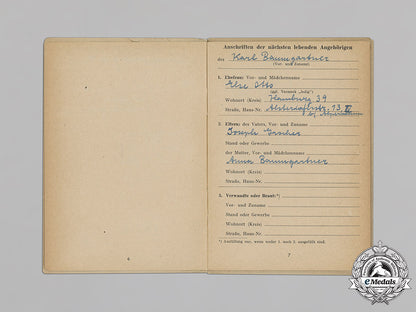 Anschriften der nächsten lebenden Angehörigen
des Karl Baumgartner
(Vor- und Zuname)
1. Ehefrau: Vor- und Mädchenname
Else Otto
(ggf. Vermerk „ledig“)
Wohnort (Kreis) Hamburg 39
Straße, Haus-Nr. 13 IV
bei
2. Eltern: des Vaters, Vor- und Zuname
Joseph
Stand oder Gewerbe
der Mutter, Vor- und Mädchenname
Anna Baumgartner
Wohnort (Kreis)
Straße, Haus-Nr.
3. Verwandte oder Braut:*)
Vor- und Zuname
Stand oder Gewerbe
Wohnort (Kreis)
Straße, Haus-Nr.
*) Ausfüllung nur, wenn weder 1. noch 2. ausgefüllt sind.
6
7
eMedals